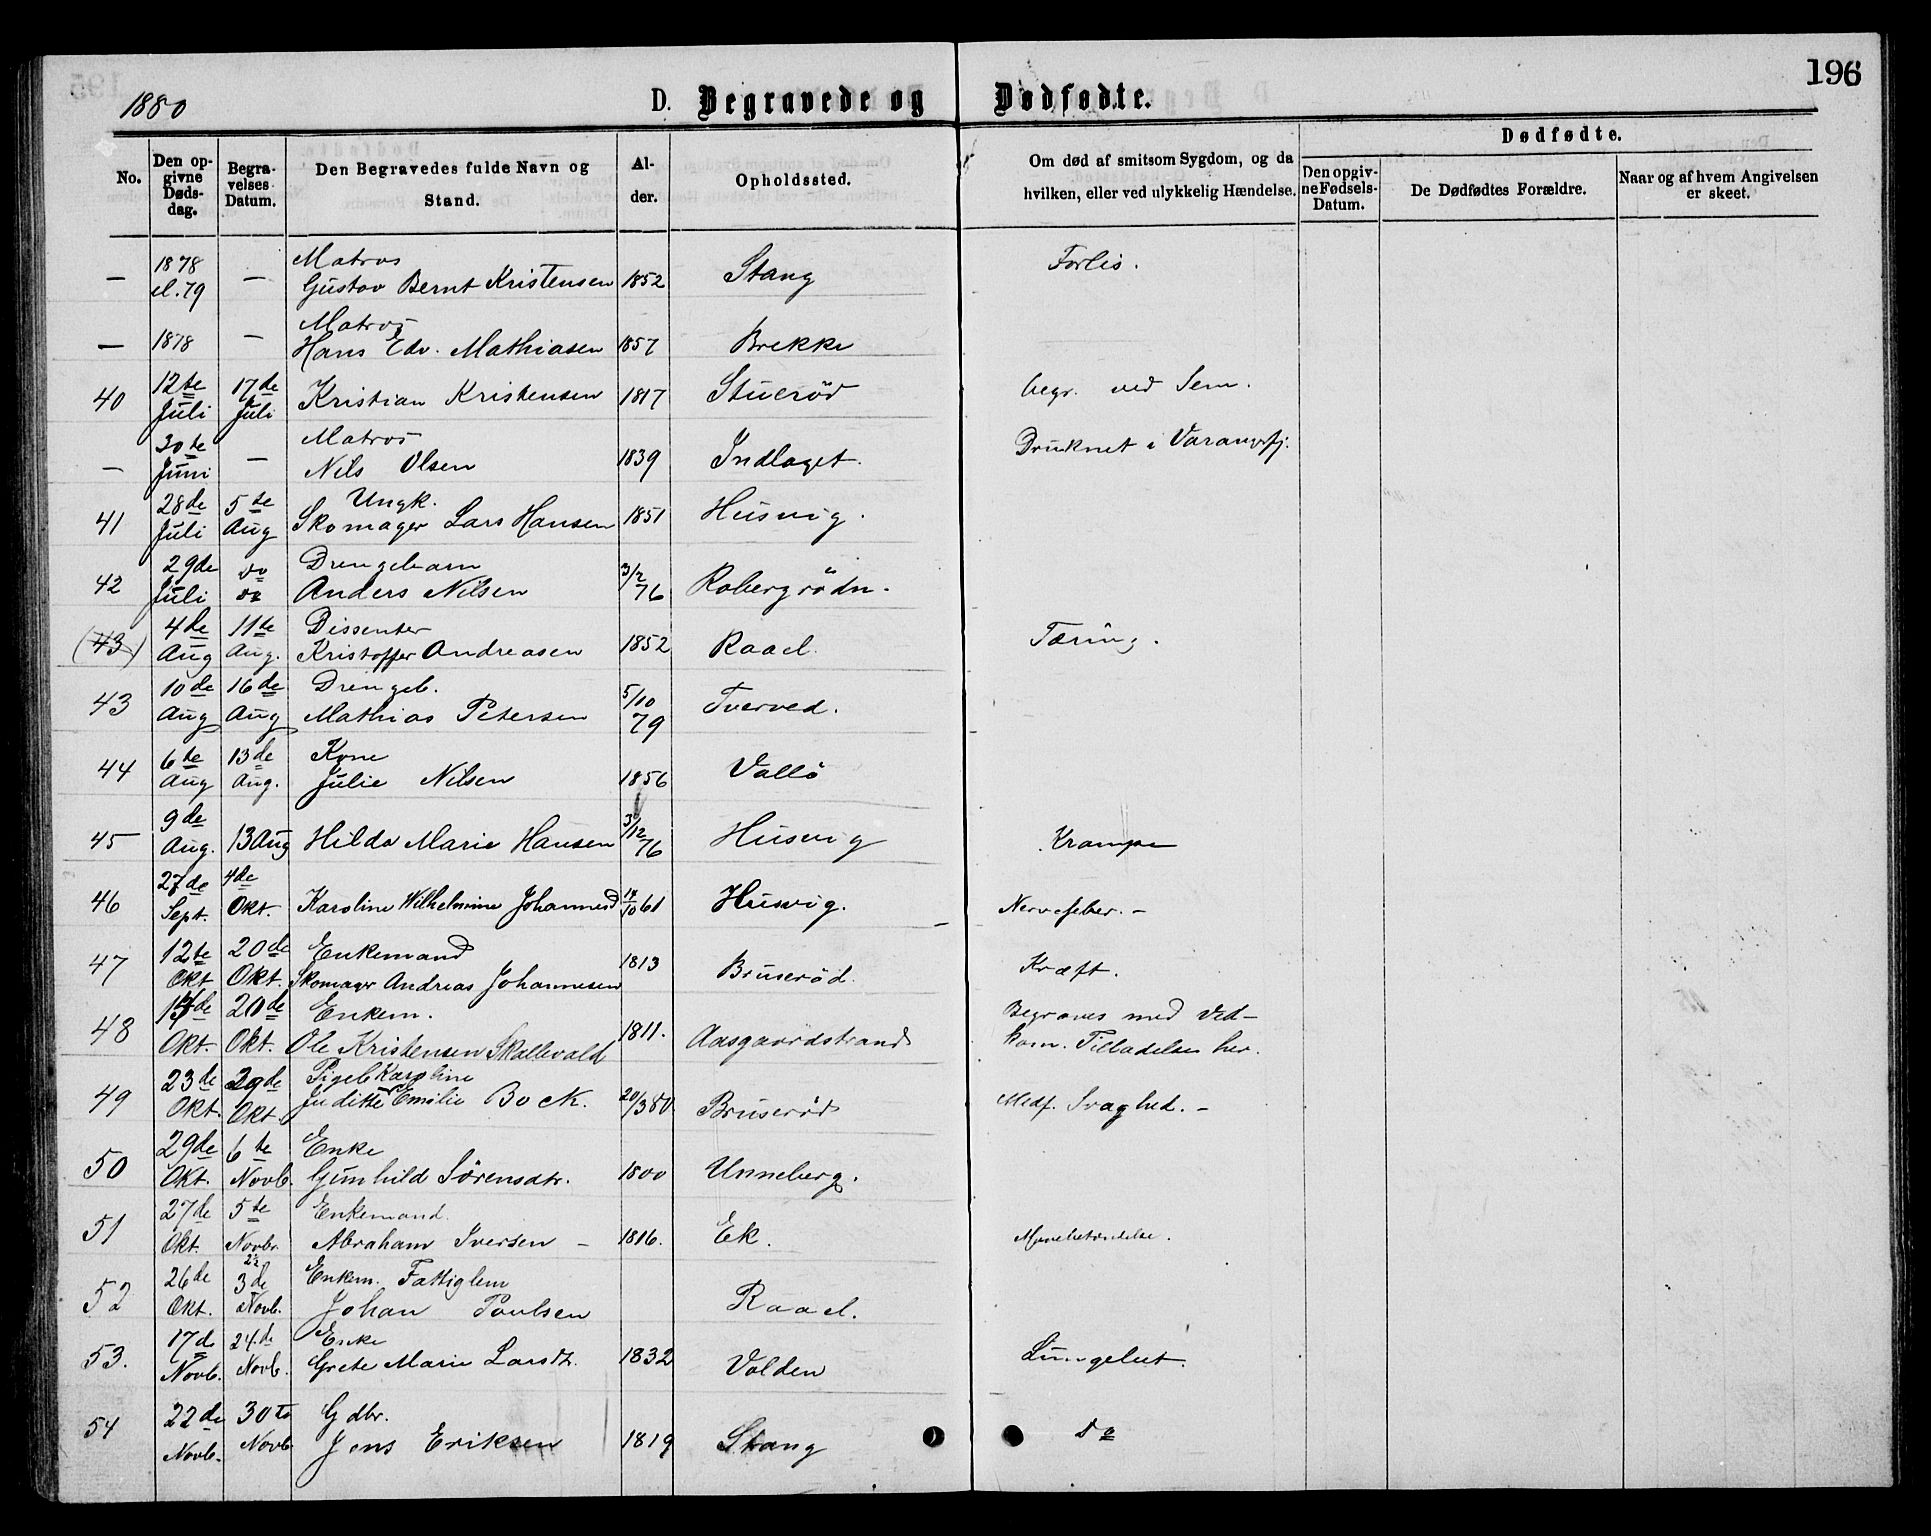 196
1880
D. Begravede og Dødfødte.
No.
Den opgivne Dødsdag.
Begravelses Datum.
Den Begravedes fulde Navn og Stand.
Alder.
Opholdssted.
Om død af smitsom Sygdom, og da hvilken, eller ved ulykkelig Hændelse.
Dødfødte.
Den opgivne Fødsels-Datum.
De Dødfødtes Forældre.
Naar og af hvem Angivelsen er skeet.
— 1878 — Matros
el. 79 Gustav Bernt Kristensen 1852 Stang Forlis.
— 1878 — Matros
Hans Edv. Mathiasen 1857 Brekke
40 12te Juli 17de Juli Kristian Kristensen 1817 Stuerød begr. ved Sem.
— 30te Juni — Matros
Nils Olsen 1839 Indlaget. Druknet i Varangerfj.
41 28de Juli 5te Aug Ungk.
Skomager Lars Hansen 1851 Husvig.
42 29de Juli do do Drengebarn
Anders Nilsen 3/2 76 Robergrödn.
(43) 4de Aug 11te Aug. Dissenter
Kristoffer Andreasen 1852 Raael. Tæring.
43 10de Aug 16de Aug Drengeb.
Mathias Petersen 5/10 79 Tverved.
44 6te Aug 13de Aug. Kone
Julie Nilsen 1856 Vallö
45 9de Aug. 13 Aug Hilda Marie Hansen 3/12 76 Husvig Krampe
46 27de Sept. 4de Okt. Karoline Wilhelmine Johannesd 14/10 61 Husvig. Nervefeber. —
47 12te Okt 20de Okt. Enkemand
Skomager Andreas Johannesen 1813 Bruserød. Kræft.
48 Okt. 20de Okt. Enkem.
Ole Kristensen Skallevald 1811. Aasgaardstrand Begraves med Ved-
kom. Tilladelse her.
49 23de Okt. 29de Okt. Pigeb. Karoline
Juditte Emilie Bock. 20/3 80 Bruserød Medf. Svaghed. —
50 29de Okt. 6te Novb. Enke
Gunhild Sörensdtr. 1800 Unneberg.
51 27de Okt. 5te Novbr. Enkemand.
Abraham Iversen — 1816. Ek. Mavebetændelse.
52 26de Okt. 3de Novb. Enkem. Fattiglem
Johan Paulsen Raael.
53. 17de Novb. 24.de Novb. Enke
Grete Marie Larsdt. 1832 Volden Lungebet.
54 22de Novb. 30te Novb Gdbr.
Jens Eriksen 1819 Stang do